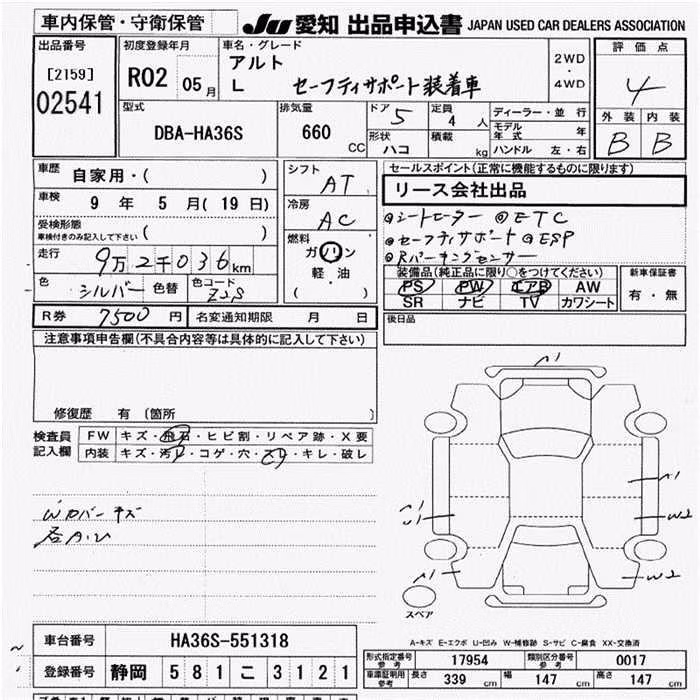 車内保管・守衛保管 JU 愛知 出品申込書 JAPAN USED CAR DEALERS ASSOCIATION
出品番号 [2159] 02541
初度登録年月 R02 05月
車名・グレード アルト L セーフティサポート装着車
2WD ・ 4WD
評価点 4
外装 内装
B B
型式 DBA-HA36S
排気量 660 CC
ドア 5 定員 4 人
形状 ハコ 積載 kg
ディーラー・並行
モデル年式 年
ハンドル 左・右
車歴 自家用・( )
車検 9 年 5 月( 19 日)
受検形態 車検付きのみ記入して下さい ( )
走行 9万2千036km
色 シルバー 色替 色コード Z2S
シフト AT
冷房 AC
燃料 ガソリン 軽・油 ( )
セールスポイント(正常に機能するものに限ります)
リース会社出品
◎シートヒーター ◎ETC
◎セーフティサポート ◎ESP
◎Rパーキングセンサー
装備品(純正品に限り○をつけてください)
PS PW エアB AW
SR ナビ TV カワシート
新車保証書 有・無
R券 7500 円 名変通知期限 月 日
後日品
注意事項申告欄(不具合内容等は具体的に記入して下さい)
修復歴 有 〔箇所 〕
検査員記入欄
FW キズ・飛石・ヒビ割・リペア跡・X要
内装 キズ・汚れ・コゲ・穴・スレ・キレ・破レ
Wカバーキズ
各A・U
A1
A1
A1
U1
W2
A1
W2
スペア
A-キズ E-エクボ U-凹み W-補修跡 S-サビ C-腐食 XX-交換済
車台番号 HA36S-551318
登録番号 静岡 581 こ 3121
形式指定番号 参考 17954 類別区分番号 参考 0017
車庫証明用 参考 長さ 339 cm 幅 147 cm 高さ 147 cm